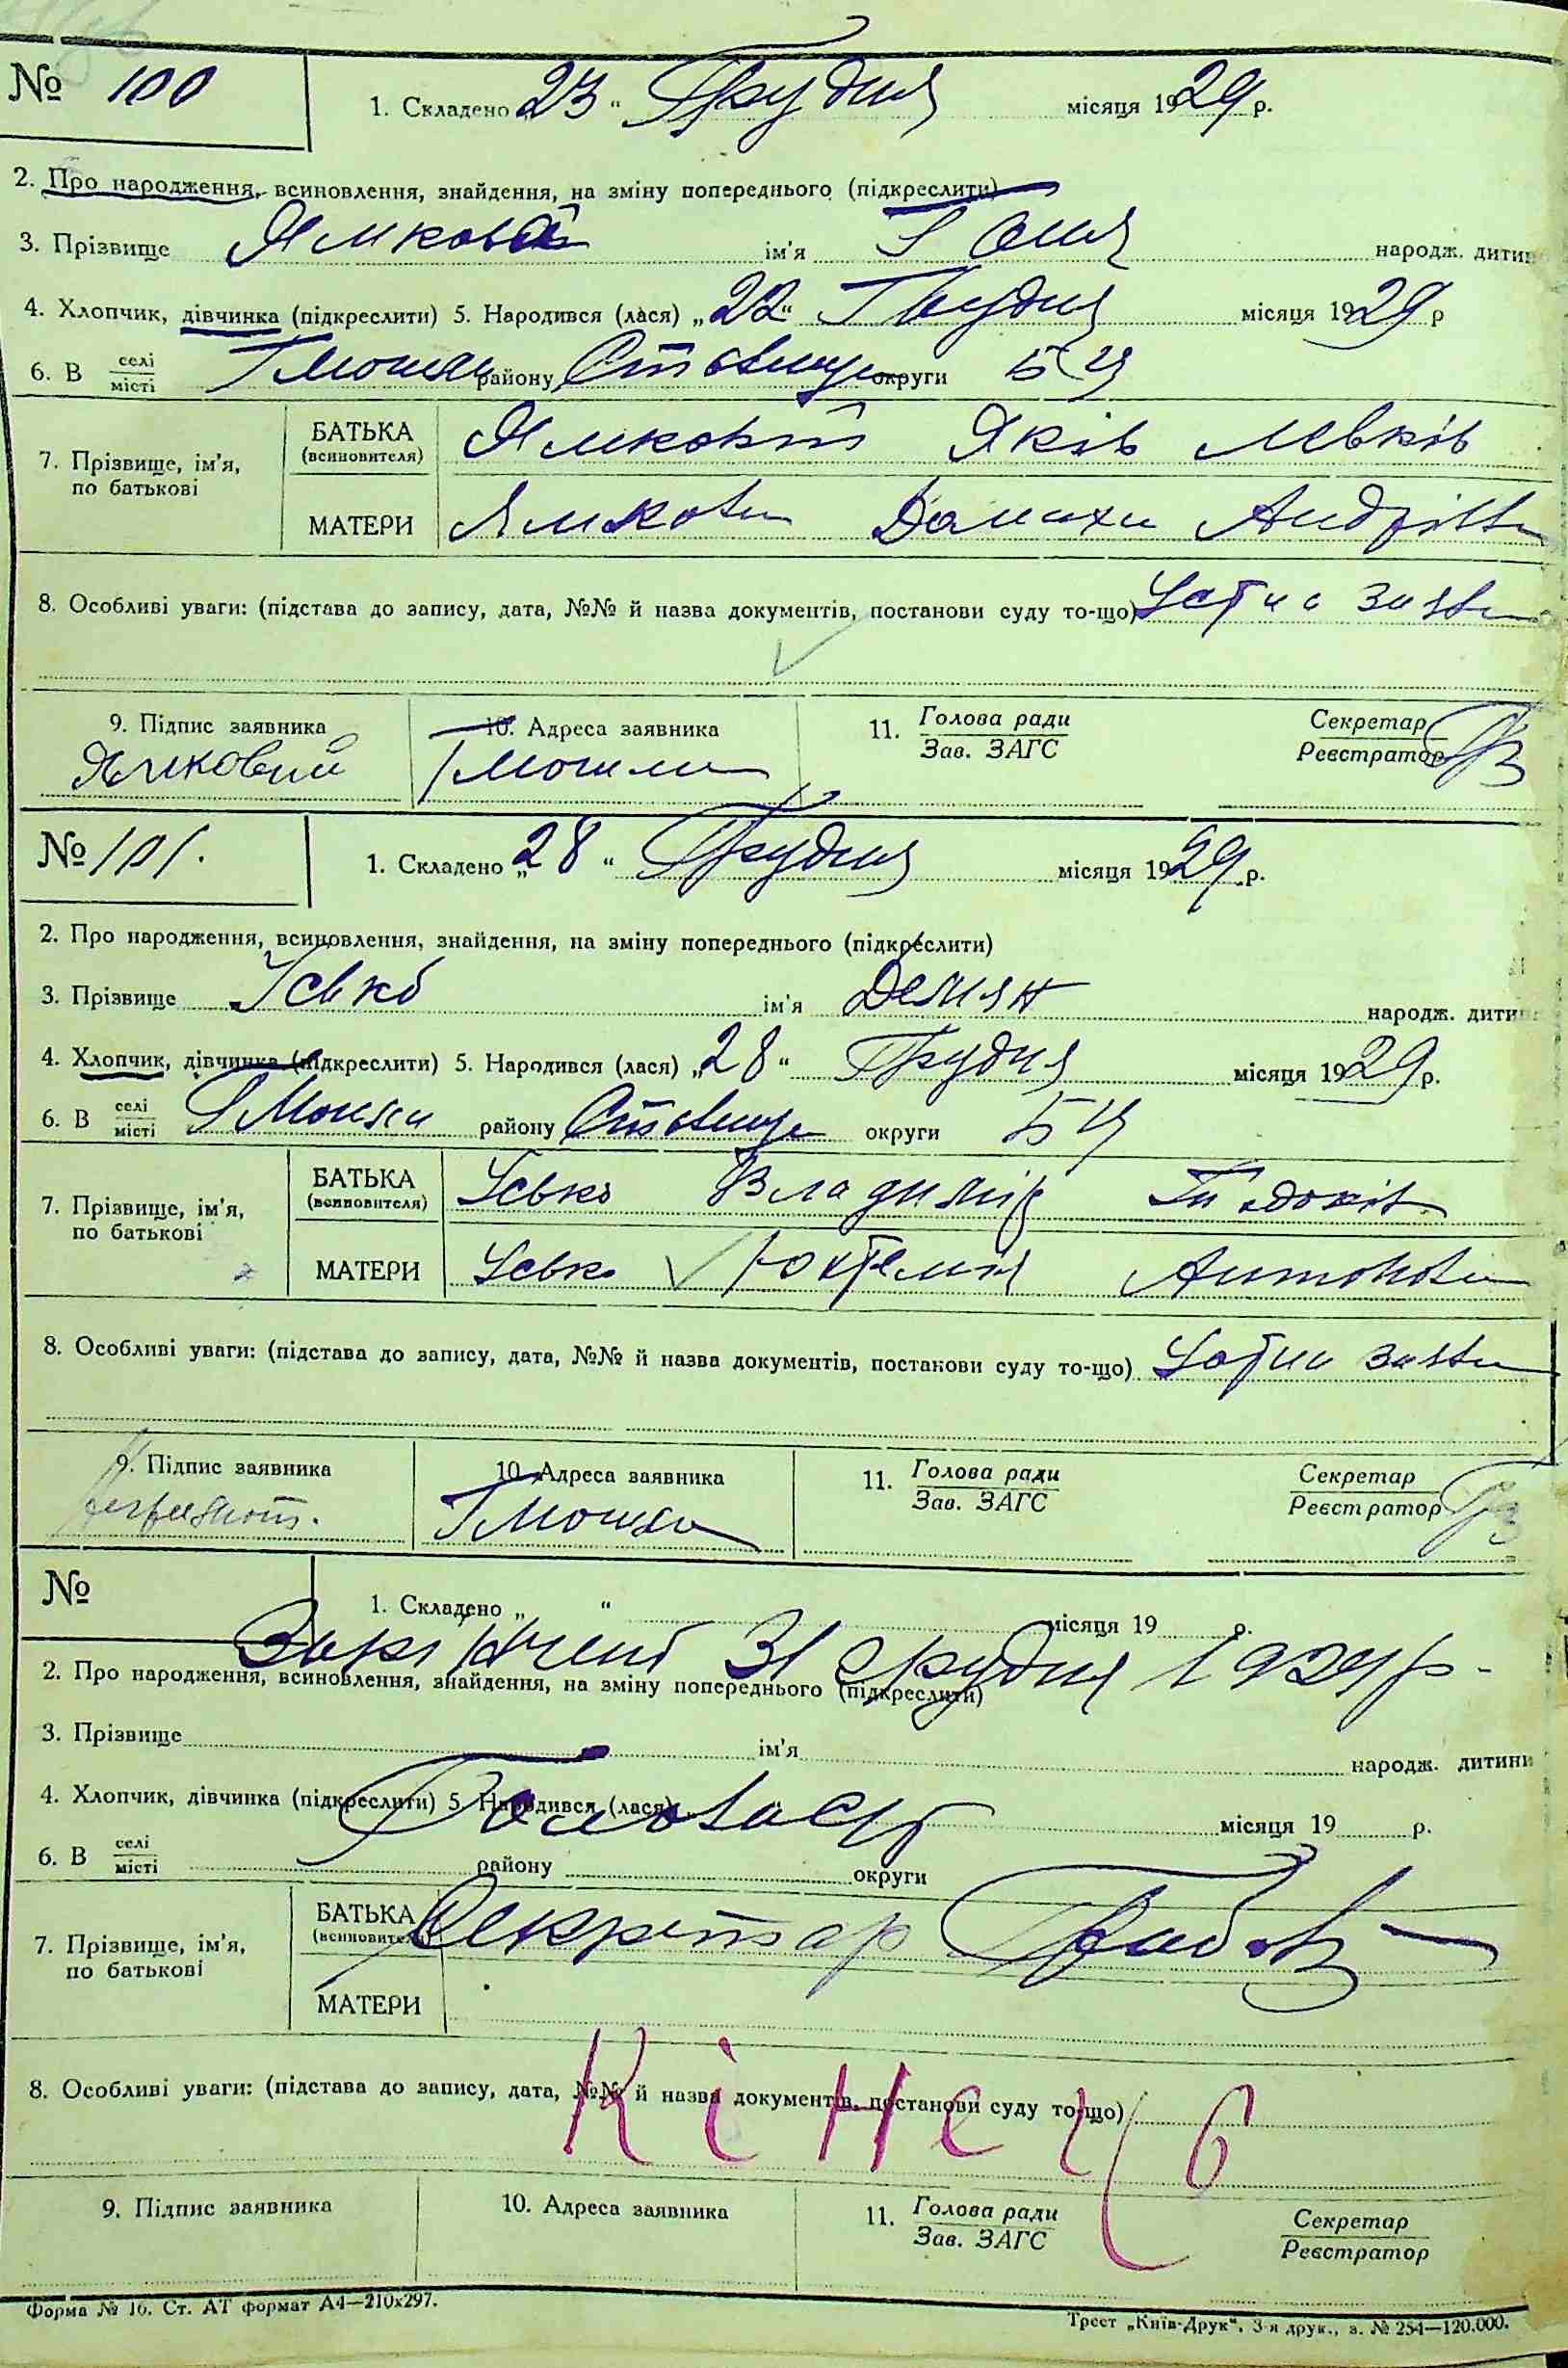 № 100
1. Складено „23“ Грудня місяця 1929 р.
2. Про народження, всиновлення, знайдення, на зміну попереднього (підкреслити)
3. Прізвище Ямкова ім'я Ганя народж. дитин
4. Хлопчик, дівчинка (підкреслити) 5. Народився (лася) „22“ Грудня місяця 1929 р
6. В селі/місті району округи БЦ
7. Прізвище, ім'я, по батькові
БАТЬКА (всиновителя) Ямковий Яків Левків
МАТЕРИ Ямкова Домаха Андріївна
8. Особливі уваги: (підстава до запису, дата, №№ й назва документів, постанови суду то-що) Устна заява
9. Підпис заявника
10. Адреса заявника
11. Голова ради
Зав. ЗАГС
Секретар
Реєстратор
Ямковий
№ 101.
1. Складено „28“ Грудня місяця 1929 р.
2. Про народження, всиновлення, знайдення, на зміну попереднього (підкреслити)
3. Прізвище Усько ім'я Демян народж. дити
4. Хлопчик, дівчинка (підкреслити) 5. Народився (лася) „28“ Грудня місяця 1929 р.
6. В селі/місті району округи БЦ
7. Прізвище, ім'я, по батькові
БАТЬКА (всиновителя) Усько Владимір
МАТЕРИ Усько Юхтемія Антонова
8. Особливі уваги: (підстава до запису, дата, №№ й назва документів, постанови суду то-що) Устна заява
9. Підпис заявника
10. Адреса заявника
11. Голова ради
Зав. ЗАГС
Секретар
Реєстратор
неграмотн.
№
1. Складено „ “ місяця 19 р.
Закінчено 31 грудня 1929 р.
2. Про народження, всиновлення, знайдення, на зміну попереднього (підкреслити)
3. Прізвище ім'я народж. дитини
4. Хлопчик, дівчинка (підкреслити) 5. Народився (лася) „ місяця 19 р.
Голова
6. В селі/місті району округи
7. Прізвище, ім'я, по батькові
БАТЬКА (всиновителя)
Секретар
МАТЕРИ
8. Особливі уваги: (підстава до запису, дата, №№ й назва документів, постанови суду то-що)
Кінець
9. Підпис заявника
10. Адреса заявника
11. Голова ради
Зав. ЗАГС
Секретар
Реєстратор
Форма № 16. Ст. АТ формат А4—210х297.
Трест „Київ-Друк“, 3-я друк., з. № 254—120.000.